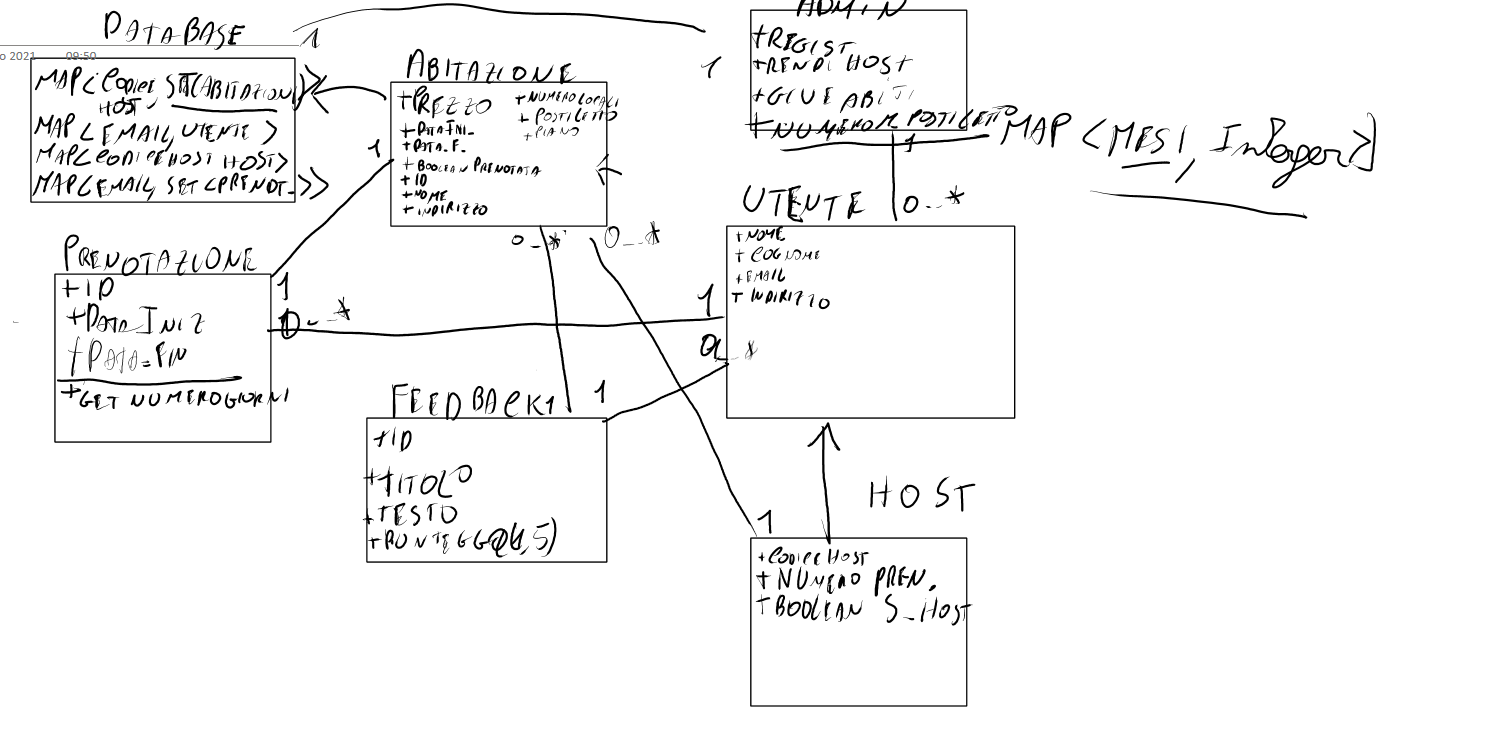 DATABASE
1
o 2021 09:50
MAP<CODICE HOST, SET<ABITAZIONI>>
MAP<EMAIL, UTENTE>
MAP<CODICE HOST HOST>
MAP<EMAIL, SET<PRENOT_>>
ABITAZIONE
+PREZZO
+DATA INI_
+DATA_F_
+BOOLEAN PRENOTATA
+ID
+NOME
+INDIRIZZO
+NUMERO LOCALI
+POSTI LETTO
+PIANO
1
0_*
0_*
ADMIN
1
+REGIST
+RENDI HOST
+GIVE ABIT
+NUMERO M POSTI LETTO
MAP <MESI, Integer>
1
0_*
UTENTE
+NOME
+COGNOME
+EMAIL
+INDIRIZZO
1
0_*
PRENOTAZIONE
+ID
+DATA_INIZ
+DATA_FIN
+GET NUMERO GIORNI
1
0_*
FEEDBACK
1
1
+ID
+TITOLO
+TESTO
+PUNTEGGIO(1,5)
HOST
1
+CODICE HOST
+NUMERO PREN.
+BOOLEAN S_HOST